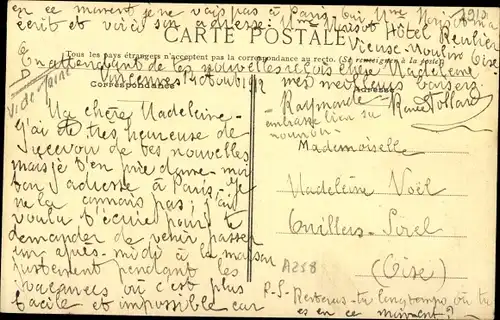 en ce moment je ne vais pas à Paris
écrit et voici son adresse: Mme Morisot Hôtel
CARTE POSTALE
Vieux Moulin Oise
Tous les pays étrangers n'acceptent pas la correspondance au recto. (Se renseigner à la poste)
En attendant de tes nouvelles reçois chère Madeleine
mes meilleurs baisers
Correspondance
Adresse
Raymonde
embrasse bien ta
Ma chère Madeleine
J'ai été très heureuse de
recevoir de tes nouvelles
mais je t'en prie donne-moi
ton adresse à Paris. Je
ne la connais pas; j'ai
voulu t'écrire pour te
demander de venir passer
un après-midi à la maison
justement pendant les
vacances où c'est plus
facile et impossible car
Mademoiselle
Madeleine Noël
(Oise)
A258
P.S. Resteras-tu longtemps où tu
es en ce moment?